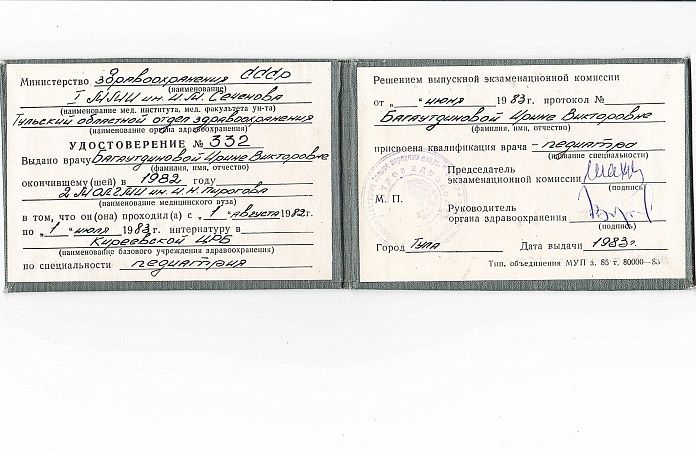 Министерство здравоохранения СССР
(наименование)
I ММИ им. И.М. Сеченова
(наименование мед. института, мед. факультета ун-та)
Тульский областной отдел здравоохранения
(наименование органа здравоохранения)
УДОСТОВЕРЕНИЕ № 332
Выдано врачу Багаутдиновой Ирине Викторовне
(фамилия, имя, отчество)
окончившему (шей) в 1982 году
2 МОЛГМИ им. Н.И. Пирогова
(наименование медицинского вуза)
в том, что он (она) проходил (а) с „1“ августа 1982 г.
по „1“ июля 1983 г. интернатуру в
Киреевской ЦРБ
(наименование базового учреждения здравоохранения)
по специальности педиатрия
Решением выпускной экзаменационной комиссии
от „ “ июня 1983 г. протокол №
Багаутдиновой Ирине Викторовне
(фамилия, имя, отчество)
присвоена квалификация врача – педиатра
(название специальности)
Председатель
экзаменационной комиссии
(подпись)
М. П.
Руководитель
органа здравоохранения
(подпись)
Город Тула Дата выдачи 1983 г.
Тип. объединения МУП з. 85 т. 80000—83